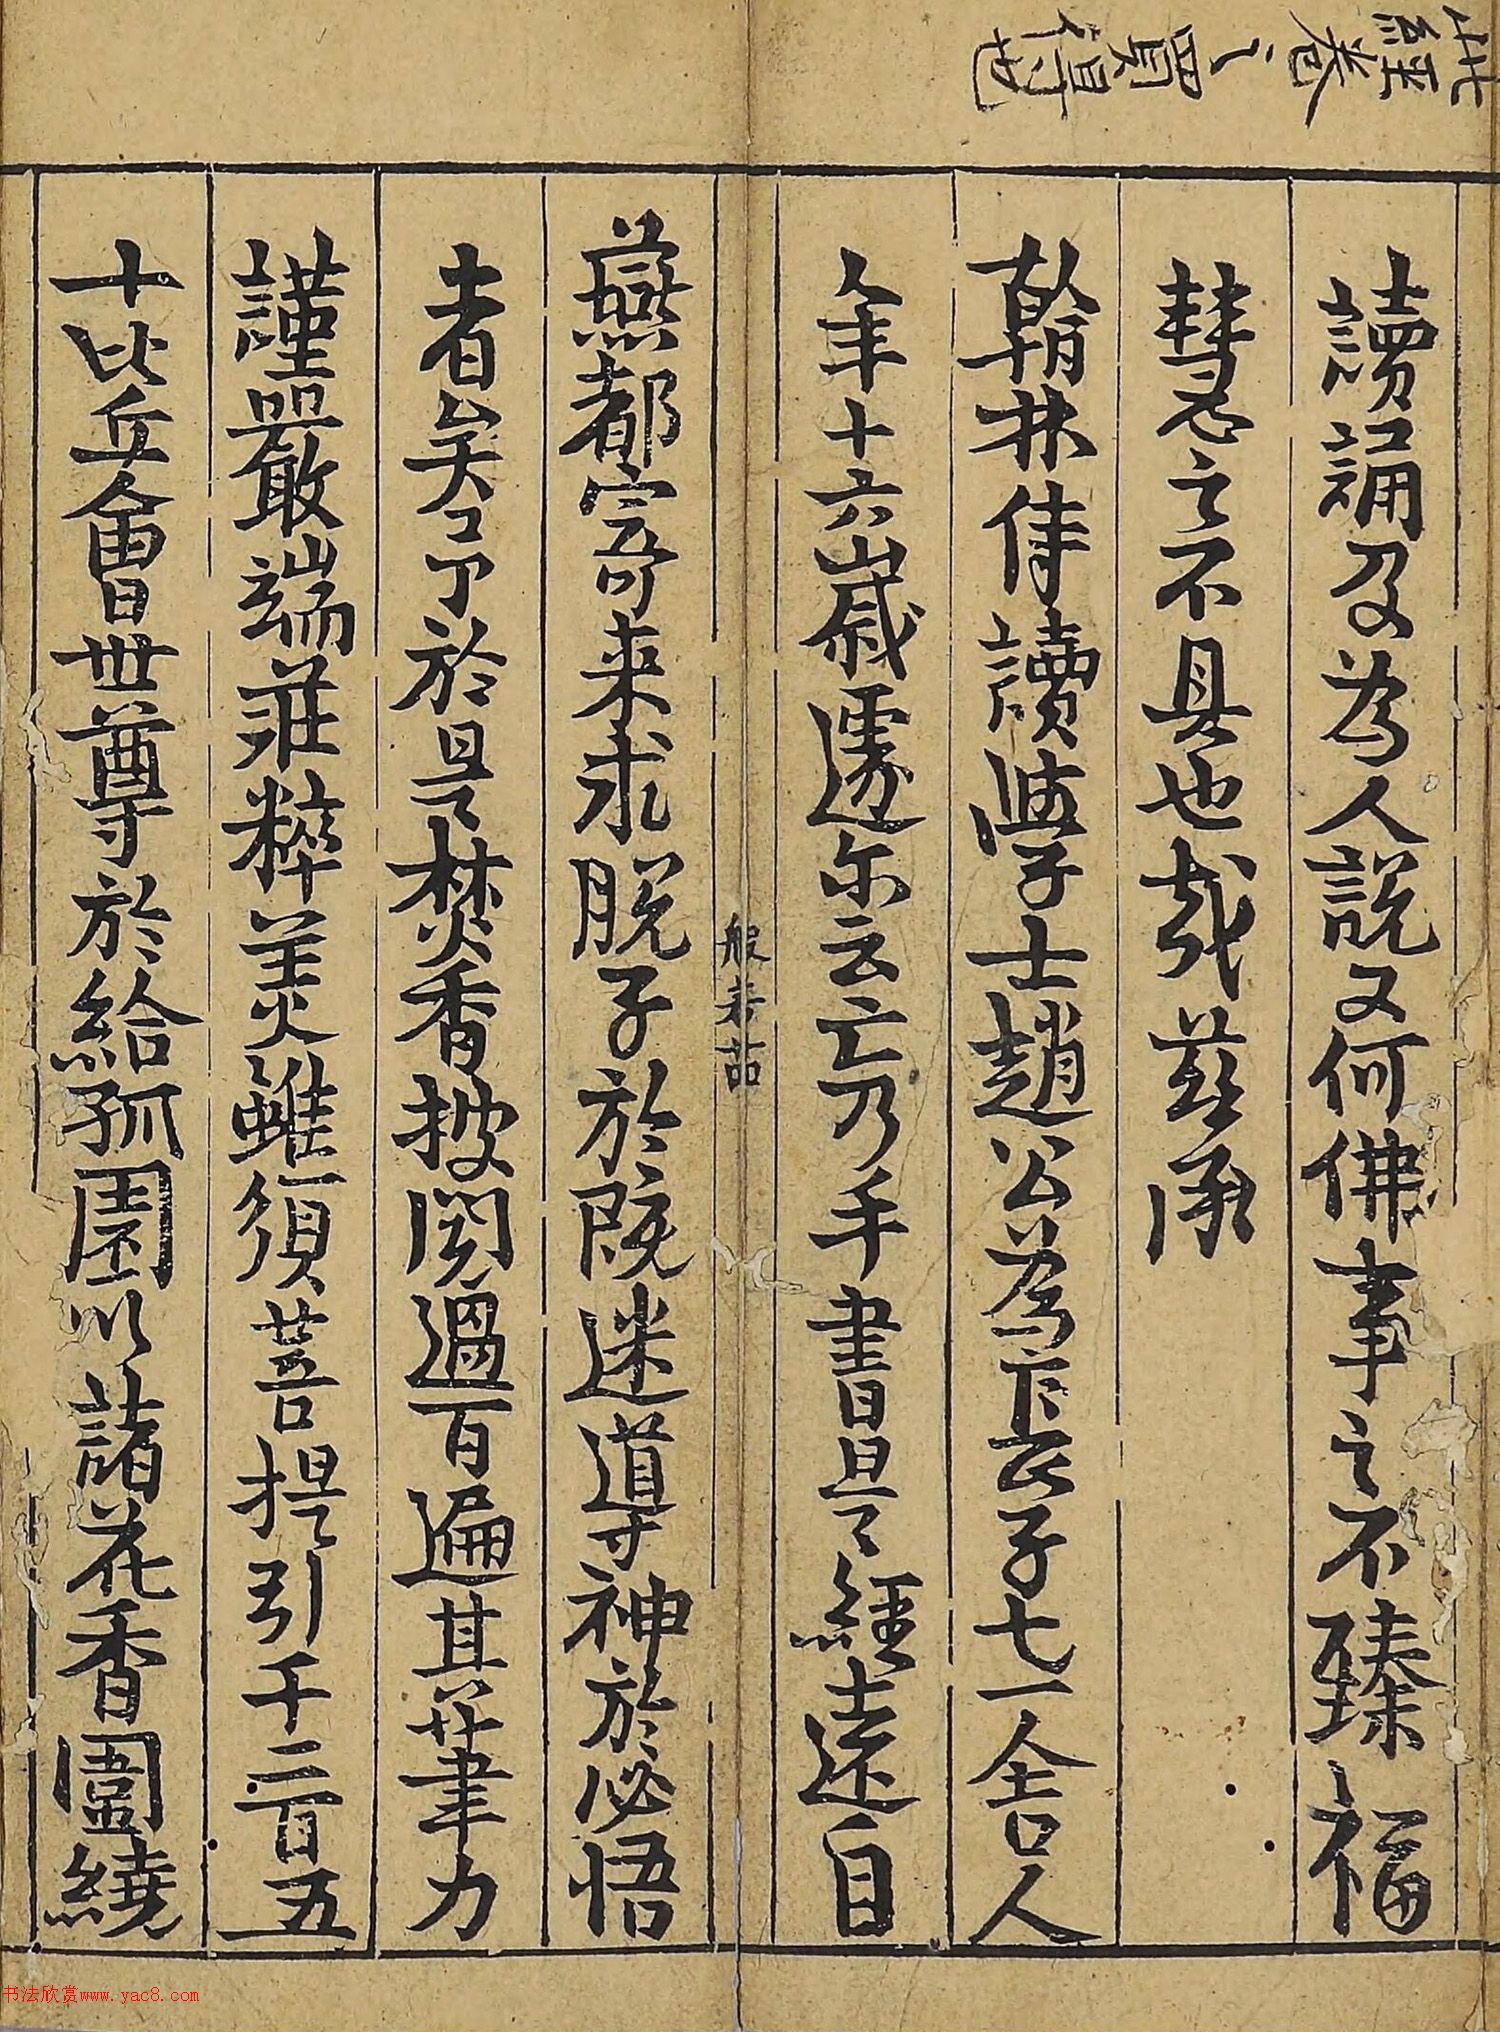 此經卷之買得也
讀誦及为人説又何佛事之不臻福
慧之不具也哉兹承
翰林侍讀學士趙公为長子七一舍人
年十六歲遽尔云亡乃手書是經遠自
般若 茆
燕都寄来求脱子於既迷導神於必悟
者矣予於是焚香披閱過百遍其筆力
謹嚴端莊粹美雖須菩提引千二百五
十比丘會世尊於給孤園以諸花香圍繞
书法欣赏www.yac8.com